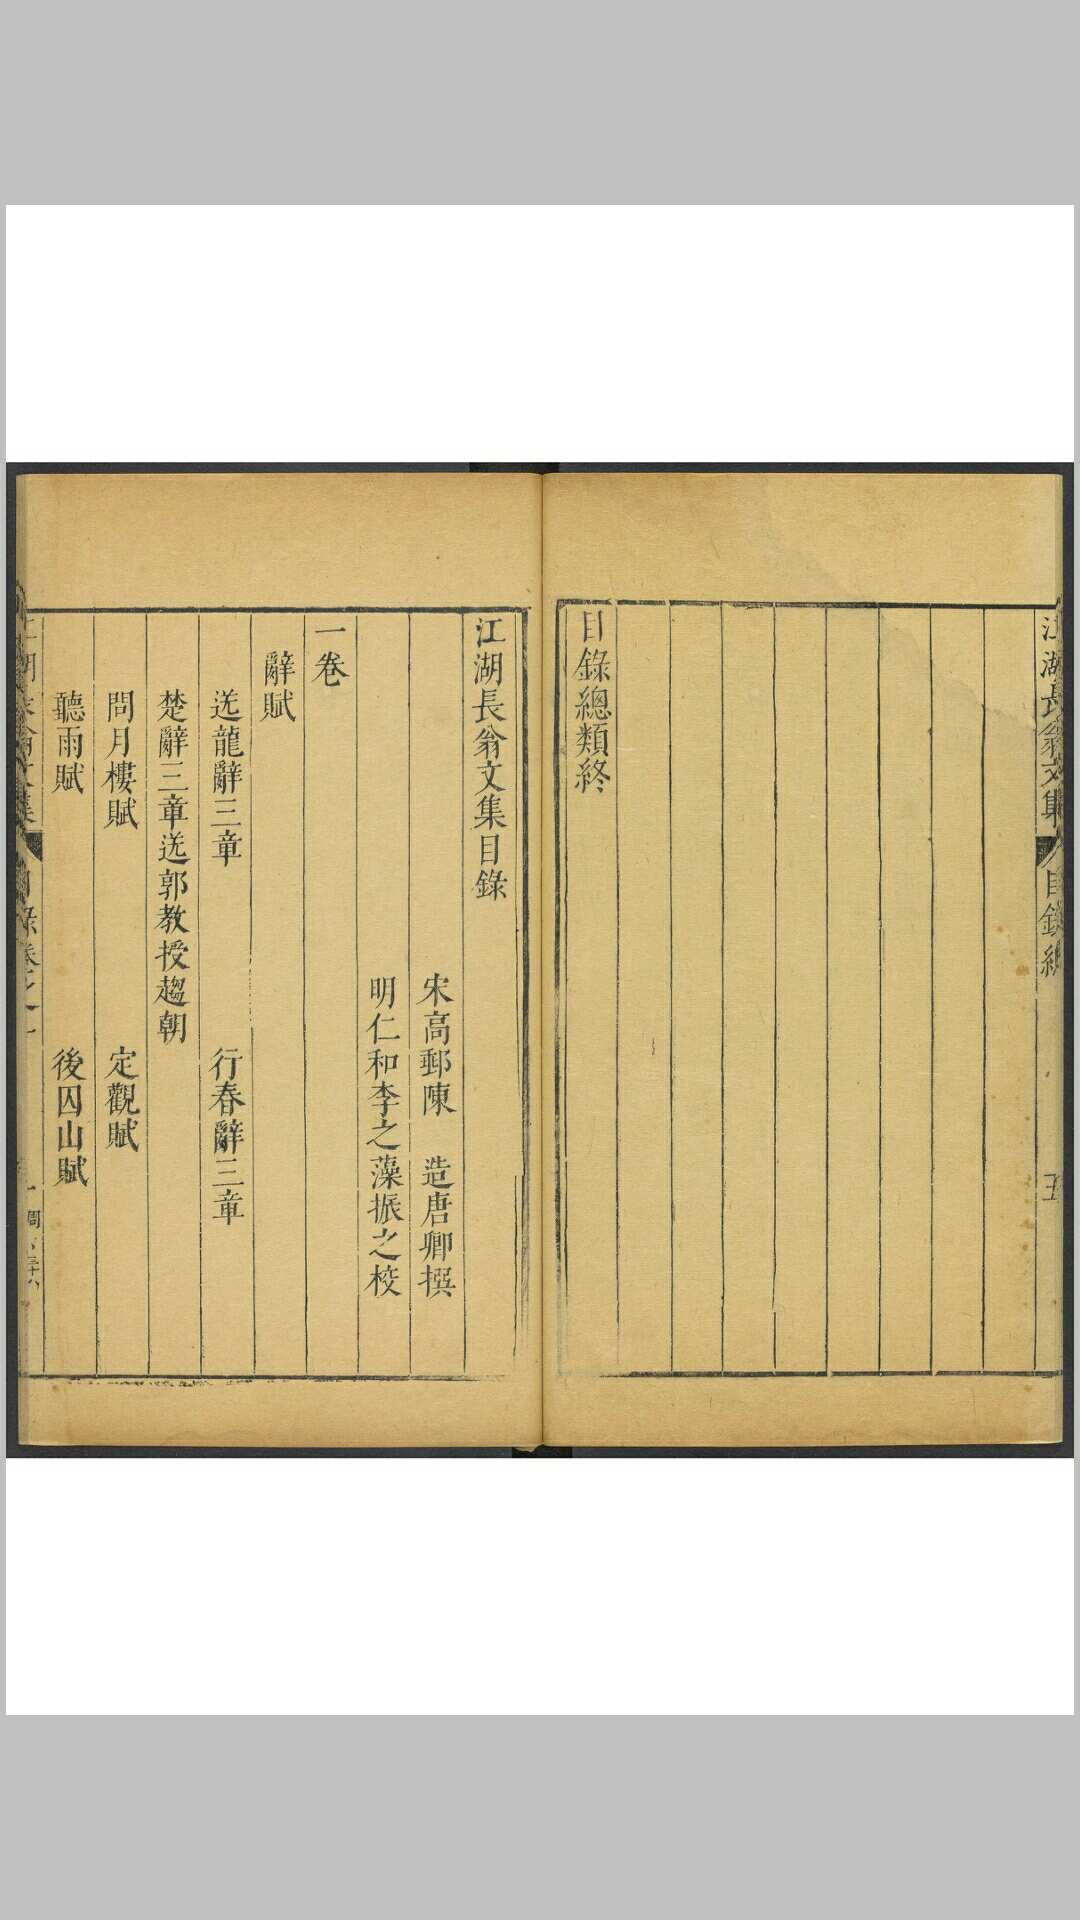 江湖長翁文集
目錄總
五
目錄總類終
江湖長翁文集目錄
宋高郵陳　造唐卿撰
明仁和李之藻振之校
一卷
辭賦
送龍辭三章　行春辭三章
楚辭三章送郭教授趨朝
問月樓賦　定觀賦
聽雨賦　後囚山賦